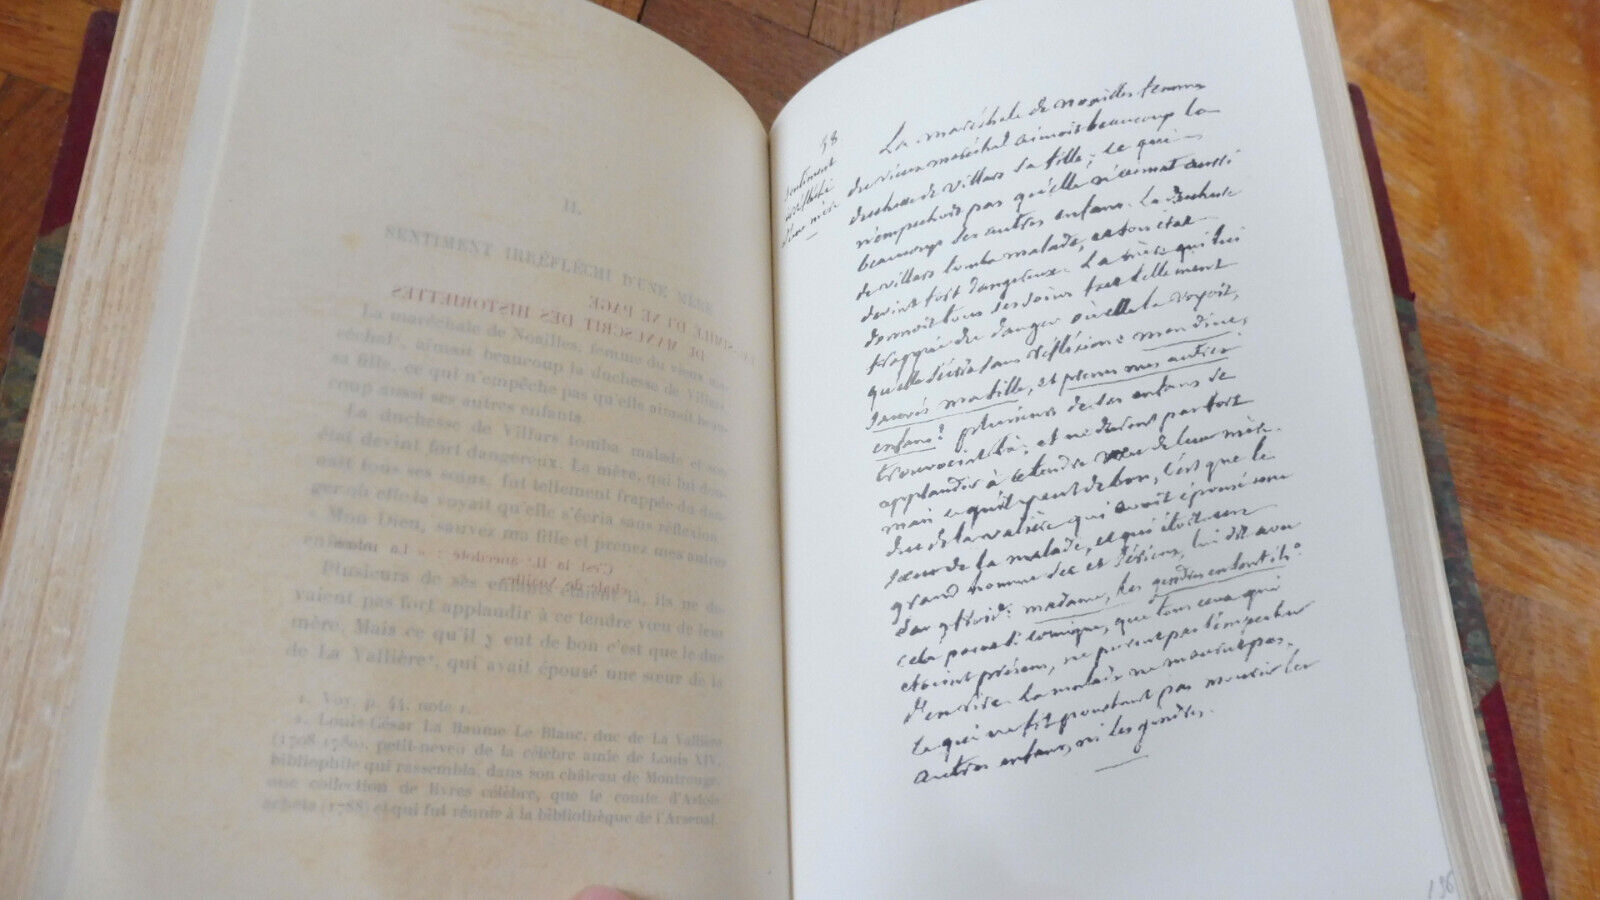 II.
SENTIMENT IRRÉFLÉCHI D'UNE MÈRE
FAC-SIMILE D'UNE PAGE
DU MANUSCRIT DES HISTORIETTES
La maréchale de Noailles, femme du vieux ma-
réchal, aimait beaucoup la duchesse de Villars,
sa fille, ce qui n'empêche pas qu'elle aimait beau-
coup aussi ses autres enfants.
La duchesse de Villars tomba malade et son
état devint fort dangereux. La mère, qui lui don-
nait tous ses soins, fut tellement frappée du dan-
ger où elle la voyait qu'elle s'écria sans réflexion :
« Mon Dieu, sauvez ma fille et prenez mes autres
enfants
C'est la IIe anecdote : « La maré-
chale de Noailles
Plusieurs de ses enfants étaient là, ils ne de-
vaient pas fort applaudir à ce tendre vœu de leur
mère. Mais ce qu'il y eut de bon c'est que le duc
de La Vallière², qui avait épousé une sœur de la
1. Voy. p. 44, note 1.
2. Louis-César La Baume Le Blanc, duc de La Vallière
(1708-1780), petit-neveu de la célèbre amie de Louis XIV,
bibliophile qui rassembla, dans son château de Montrouge,
une collection de livres célèbre, que le comte d'Artois
acheta (1788) et qui fut réunie à la bibliothèque de l'Arsenal.
Sentiment
irreflechi
d'une mère
La maréchale de noailles femme
du vieux maréchal aimoit beaucoup la
duchesse de villars sa fille; ce qui
n'empechoit pas qu'elle n'aimat aussi
beaucoup ses autres enfans. La duchesse
de villars tomba malade, et son état
devint fort dangereux. La mère qui lui
donnoit tous ses soins fut tellement
frappée du danger où elle la voyoit,
qu'elle s'écria sans réflexion: mon dieu,
sauvés ma fille, et prenes mes autres
enfans! plusieurs de ses enfans se
trouvoient là; et ne durent pas fort
applaudir à ce tendre vœu de leur mère.
mais ce qu'il y eut de bon, c'est que le
duc de la valière qui avoit épousé une
sœur de la malade, et qui étoit un
grand homme sec et sérieux, lui dit avec
sang froid: madame, les gendres en sont ils?
cela parut si comique, que tous ceux qui
etoient présens, ne purent pas s'empecher
d'en rire. la malade ne mourut pas,
ce qui ne fit pourtant pas mourir les
autres enfans, ni les gendres.
136